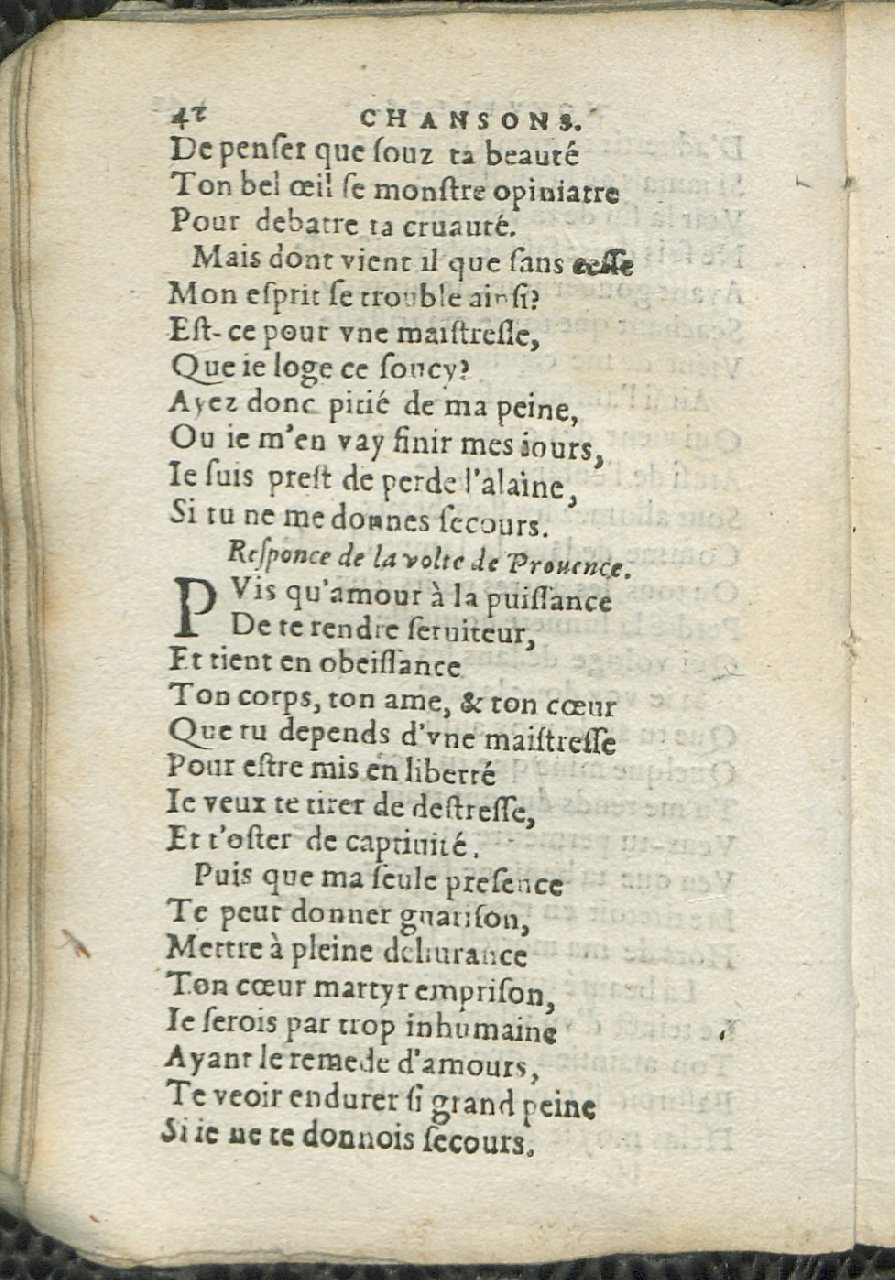 42 CHANSONS.
De penser que souz ta beauté
Ton bel œil se monstre opiniatre
Pour debatre ta cruauté.
Mais dont vient il que sans cesse
Mon esprit se trouble ainsi?
Est-ce pour vne maistresse,
Que ie loge ce soucy?
Ayez donc pitié de ma peine,
Ou ie m'en vay finir mes iours,
Ie suis prest de perde l'alaine,
Si tu ne me donnes secours.
Responce de la volte de Prouence.
PVis qu'amour à la puissance
De te rendre seruiteur,
Et tient en obeissance
Ton corps, ton ame, & ton cœur
Que tu depends d'vne maistresse
Pour estre mis en liberté
Ie veux te tirer de destresse,
Et t'oster de captiuité.
Puis que ma seule presence
Te peut donner guarison,
Mettre à pleine deliurance
Ton cœur martyr emprison,
Ie serois par trop inhumaine
Ayant le remede d'amours,
Te veoir endurer si grand peine
Si ie ne te donnois secours.